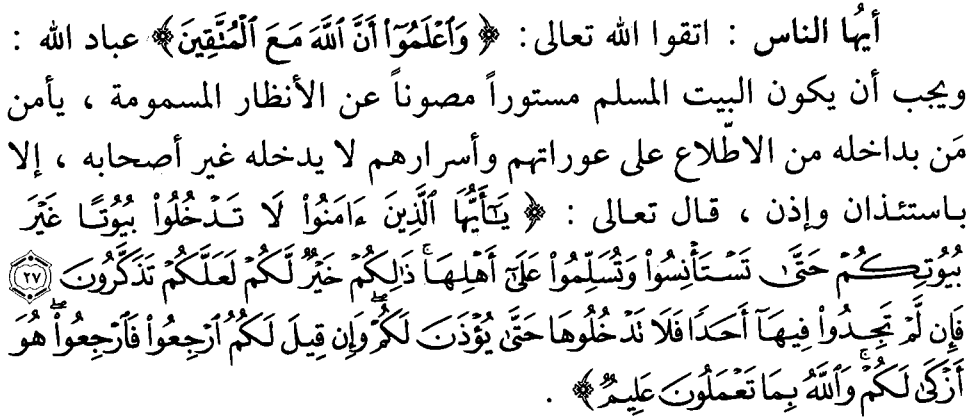 أيُّها الناس : اتقوا الله تعالى : ﴿ وَٱعۡلَمُوٓاْ أَنَّ ٱللَّهَ مَعَ ٱلۡمُتَّقِينَ﴾ عباد الله :
ويجب أن يكون البيت المسلم مستوراً مصوناً عن الأنظار المسمومة ، يأمن
مَن بداخله من الاطّلاع على عوراتهم وأسرارهم لا يدخله غير أصحابه ، إلا
باستئذان وإذن ، قال تعالى : ﴿ يَٰٓأَيُّهَا ٱلَّذِينَ ءَامَنُواْ لَا تَدۡخُلُواْ بُيُوتًا غَيۡرَ
بُيُوتِكُمۡ حَتَّىٰ تَسۡتَأۡنِسُواْ وَتُسَلِّمُواْ عَلَىٰٓ أَهۡلِهَاۚ ذَٰلِكُمۡ خَيۡرٞ لَّكُمۡ لَعَلَّكُمۡ تَذَكَّرُونَ ٢٧
فَإِن لَّمۡ تَجِدُواْ فِيهَآ أَحَدٗا فَلَا تَدۡخُلُوهَا حَتَّىٰ يُؤۡذَنَ لَكُمۡۖ وَإِن قِيلَ لَكُمُ ٱرۡجِعُواْ فَٱرۡجِعُواْۖ هُوَ
أَزۡكَىٰ لَكُمۡۚ وَٱللَّهُ بِمَا تَعۡمَلُونَ عَلِيمٞ﴾ .